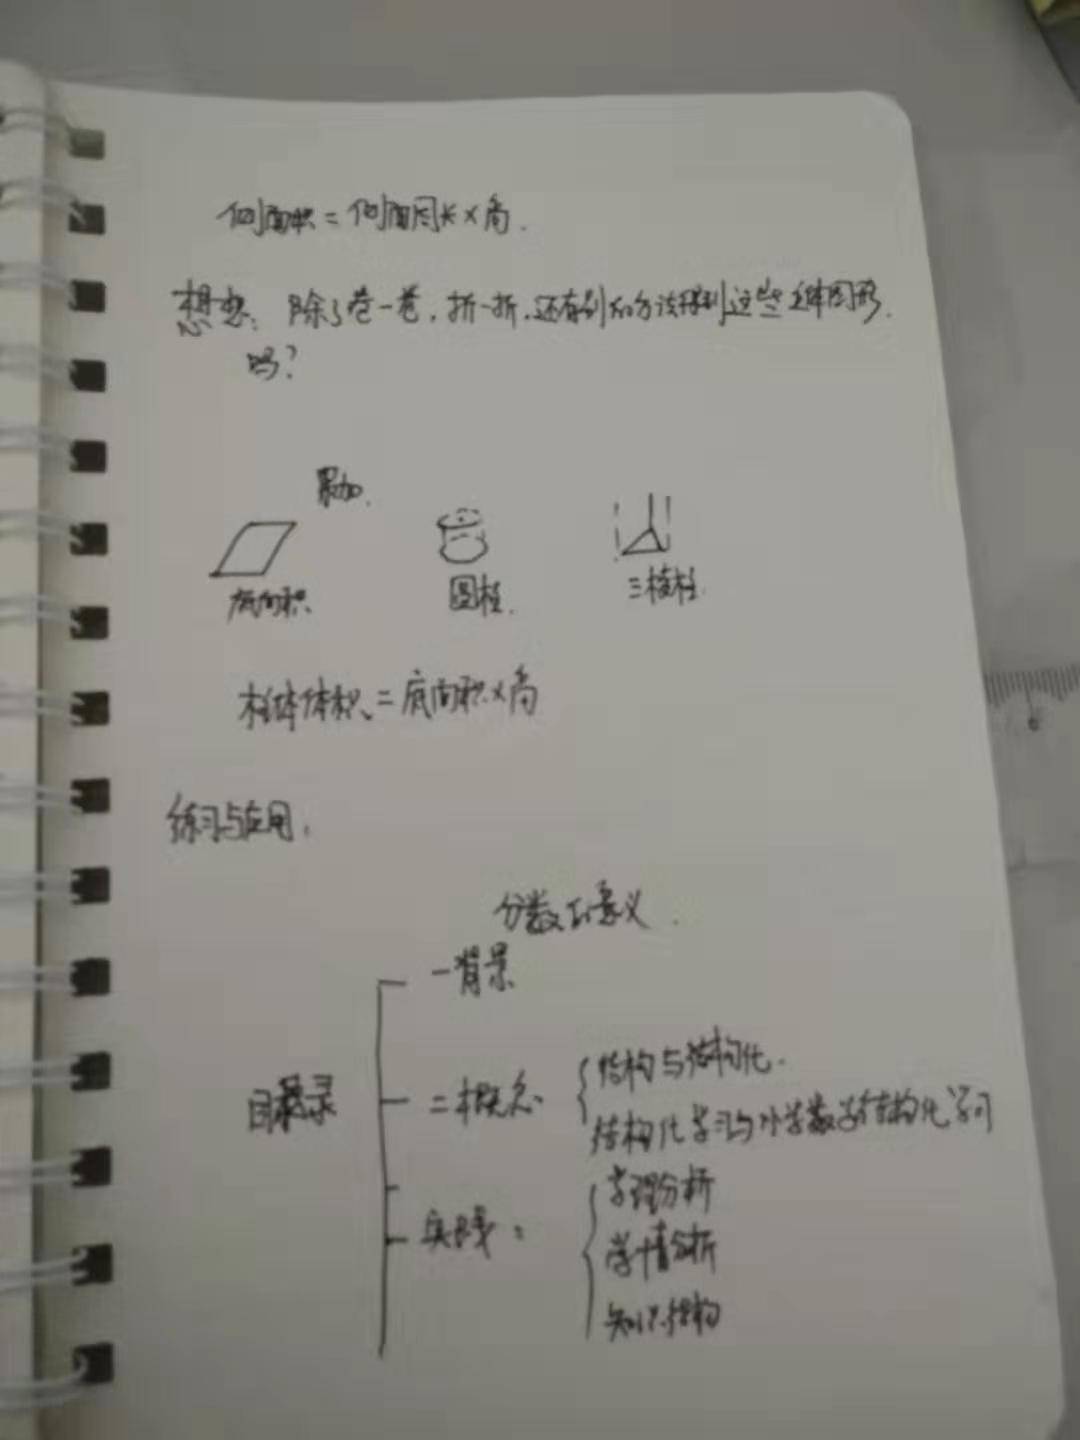 侧面积=侧面周长×高.
想想:除了卷一卷,折一折,还有别的方法得到这些立体图形.
吗?
累加.
底面积 圆柱. 三棱柱.
柱体体积=底面积×高
练习与应用:
分数的意义.
一背景
目录 二概念 结构与结构化.
结构化学习与小学数学结构化学习
实践: 学理分析
学情分析
知识结构